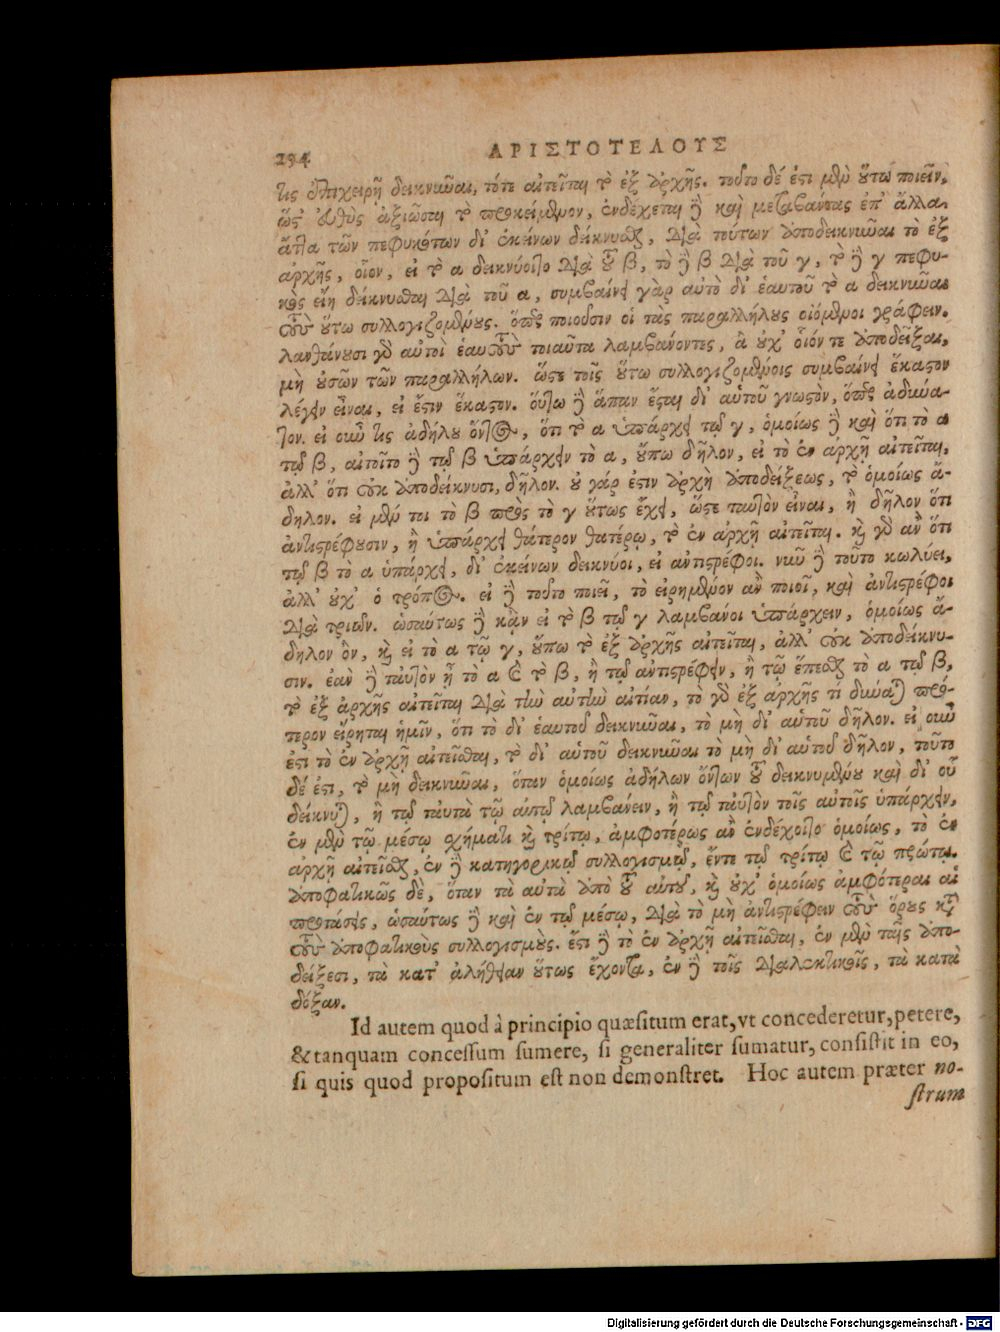 294 ΑΡΙΣΤΟΤΕΛΟΥΣ
τις ἐπιχειρῇ δεικνύναι, τότε αἰτεῖται τὸ ἐξ ἀρχῆς. τοῦτο δέ ἐστι μὲν οὕτω ποιεῖν,
ὥστ' εὐθὺς ἀξιῶσαι τὸ προκείμενον, ἐνδέχεται δὲ καὶ μεταβάντας ἐπ' ἄλλα
ἄττα τῶν πεφυκότων δι' ἐκείνων δείκνυσθαι, διὰ τούτων ἀποδεικνύναι τὸ ἐξ
ἀρχῆς, οἷον, εἰ τὸ α δεικνύοιτο διὰ τοῦ β, τὸ δὲ β διὰ τοῦ γ, τὸ δὲ γ πεφυ-
κὸς εἴη δείκνυσθαι διὰ τοῦ α, συμβαίνει γὰρ αὐτὸ δι' ἑαυτοῦ τὸ α δεικνύναι
τοὺς οὕτω συλλογιζομένους. ὅπερ ποιοῦσιν οἱ τὰς παραλλήλους οἰόμενοι γράφειν.
λανθάνουσι γὰρ αὐτοὶ ἑαυτοὺς τοιαῦτα λαμβάνοντες, ἃ οὐχ' οἷόν τε ἀποδεῖξαι,
μὴ οὐσῶν τῶν παραλλήλων. ὥστε τοῖς οὕτω συλλογιζομένοις συμβαίνει ἕκαστον
λέγειν εἶναι, εἰ ἔστιν ἕκαστον. οὕτω δὲ ἅπαν ἔσται δι' αὑτοῦ γνωστὸν, ὅπερ ἀδύνα-
τον. εἰ οὖν τις ἀδήλου ὄντος, ὅτι τὸ α ὑπάρχει τῷ γ, ὁμοίως δὲ καὶ ὅτι τὸ α
τῷ β, αἰτοῖτο δὲ τῷ β ὑπάρχειν τὸ α, οὔπω δῆλον, εἰ τὸ ἐν ἀρχῇ αἰτεῖται,
ἀλλ' ὅτι οὐκ ἀποδείκνυσι, δῆλον. οὐ γάρ ἐστιν ἀρχὴ ἀποδείξεως, τὸ ὁμοίως ἄ-
δηλον. εἰ μέν τοι τὸ β πρὸς τὸ γ οὕτως ἔχει, ὥστε ταυτὸν εἶναι, ἢ δῆλον ὅτι
ἀντιστρέφουσιν, ἢ ὑπάρχει θάτερον θατέρῳ, τὸ ἐν ἀρχῇ αἰτεῖται. καὶ γὰρ ἂν ὅτι
τῷ β τὸ α ὑπάρχει, δι' ἐκείνων δεικνύοι, εἰ ἀντιστρέφοι. νῦν δὲ τοῦτο κωλύει,
ἀλλ' οὐχ' ὁ τρόπος. εἰ δὲ τοῦτο ποιεῖ, τὸ εἰρημένον ἂν ποιοῖ, καὶ ἀντιστρέφοι
διὰ τριῶν. ὡσαύτως δὲ κἂν εἰ τὸ β τῷ γ λαμβάνοι ὑπάρχειν, ὁμοίως ἄ-
δηλον ὂν, καὶ εἰ τὸ α τῷ γ, οὔπω τὸ ἐξ ἀρχῆς αἰτεῖται, ἀλλ' οὐκ ἀποδείκνυ-
σιν. ἐὰν δὲ ταὐτὸν ᾖ τὸ α καὶ τὸ β, ἢ τῷ ἀντιστρέφειν, ἢ τῷ ἕπεσθαι τὸ α τῷ β,
τὸ ἐξ ἀρχῆς αἰτεῖται διὰ τὴν αὐτὴν αἰτίαν, τὸ γὰρ ἐξ ἀρχῆς τί δύναται πρό-
τερον εἴρηται ἡμῖν, ὅτι τὸ δι' ἑαυτοῦ δεικνύναι, τὸ μὴ δι' αὑτοῦ δῆλον. εἰ οὖν
ἐστι τὸ ἐν ἀρχῇ αἰτεῖσθαι, τὸ δι' αὑτοῦ δεικνύναι τὸ μὴ δι' αὑτοῦ δῆλον, τοῦτο
δέ ἐστι, τὸ μὴ δεικνύναι, ὅταν ὁμοίως ἀδήλων ὄντων τοῦ δεικνυμένου καὶ δι' οὗ
δείκνυται, ἢ τῷ ταὐτὰ τῷ αὐτῷ λαμβάνειν, ἢ τῷ ταὐτὸν τοῖς αὐτοῖς ὑπάρχειν,
ἐν μὲν τῷ μέσῳ σχήματι καὶ τρίτῳ, ἀμφοτέρως ἂν ἐνδέχοιτο ὁμοίως, τὸ ἐν
ἀρχῇ αἰτεῖσθαι, ἐν δὲ κατηγορικῷ συλλογισμῷ, ἔν τε τῷ τρίτῳ καὶ τῷ πρώτῳ.
ἀποφατικῶς δὲ, ὅταν τὰ αὐτὰ ἀπὸ τοῦ αὐτοῦ, καὶ οὐχ' ὁμοίως ἀμφότεραι αἱ
προτάσεις, ὡσαύτως δὲ καὶ ἐν τῷ μέσῳ, διὰ τὸ μὴ ἀντιστρέφειν τοὺς ὅρους κατὰ
τοὺς ἀποφατικοὺς συλλογισμούς. ἔστι δὲ τὸ ἐν ἀρχῇ αἰτεῖσθαι, ἐν μὲν ταῖς ἀπο-
δείξεσι, τὰ κατ' ἀλήθειαν οὕτως ἔχοντα, ἐν δὲ τοῖς διαλεκτικοῖς, τὰ κατὰ
δόξαν.
Id autem quod à principio quæsitum erat, vt concederetur, petere,
& tanquam concessum sumere, si generaliter sumatur, consistit in eo,
si quis quod propositum est non demonstret. Hoc autem præter no-
strum
Digitalisierung gefördert durch die Deutsche Forschungsgemeinschaft - DFG